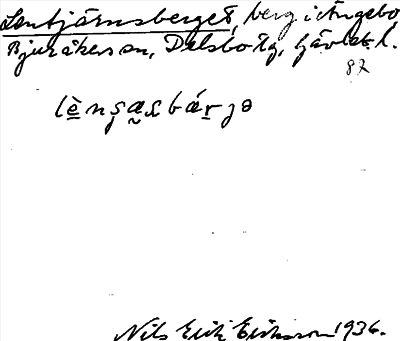 Lentjärnsberget, berg i Ängebo,
Bjuråkers sn, Delsbo tg, Gävleb. l.
87
lènşæsbárjə
Nils Erik Eriksson 1936.